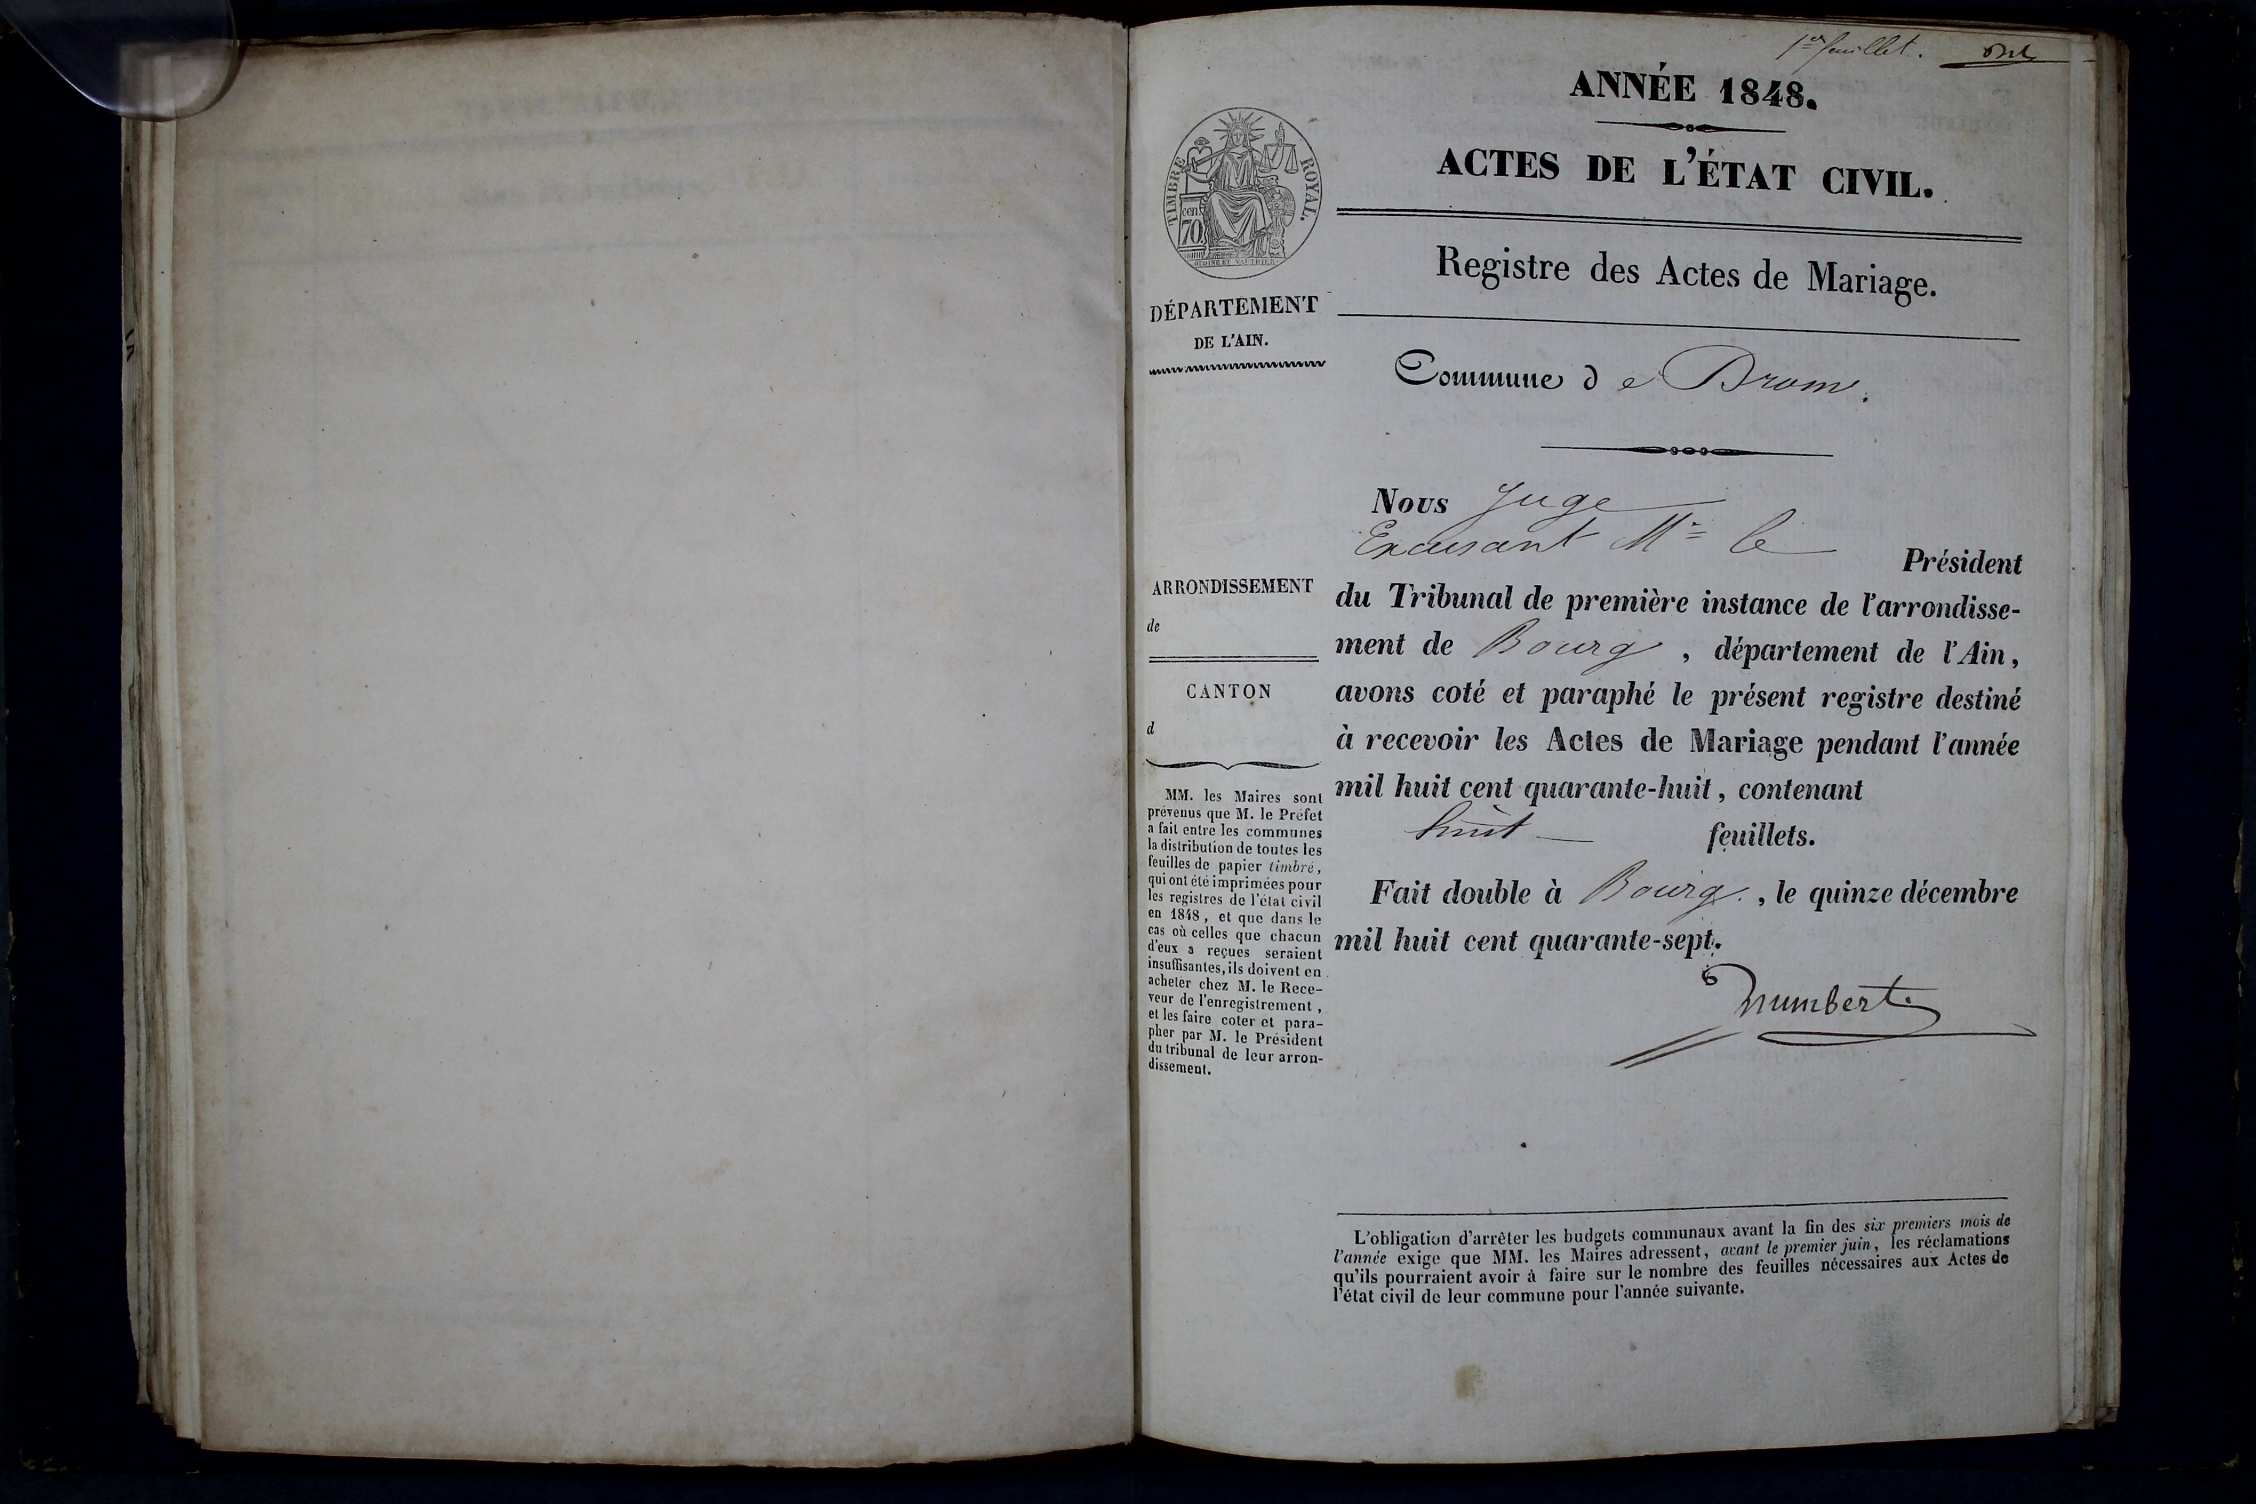 1er feuillet.
ANNÉE 1848.
ACTES DE L'ÉTAT CIVIL.
Registre des Actes de Mariage.
TIMBRE ROYAL.
cen. 70
DÉPARTEMENT
DE L'AIN.
Commune de Drom.
Nous Juge
Excusant Mr le Président
du Tribunal de première instance de l'arrondisse-
ment de Bourg, département de l'Ain,
avons coté et paraphé le présent registre destiné
à recevoir les Actes de Mariage pendant l'année
mil huit cent quarante-huit, contenant
huit feuillets.
Fait double à Bourg., le quinze décembre
mil huit cent quarante-sept.
humbert
ARRONDISSEMENT
de
CANTON
d
MM. les Maires sont
prévenus que M. le Préfet
a fait entre les communes
la distribution de toutes les
feuilles de papier timbré,
qui ont été imprimées pour
les registres de l'état civil
en 1848, et que dans le
cas où celles que chacun
d'eux a reçues seraient
insuffisantes, ils doivent en
acheter chez M. le Rece-
veur de l'enregistrement,
et les faire coter et para-
pher par M. le Président
du tribunal de leur arron-
dissement.
L'obligation d'arrêter les budgets communaux avant la fin des six premiers mois de
l'année exige que MM. les Maires adressent, avant le premier juin, les réclamations
qu'ils pourraient avoir à faire sur le nombre des feuilles nécessaires aux Actes de
l'état civil de leur commune pour l'année suivante.